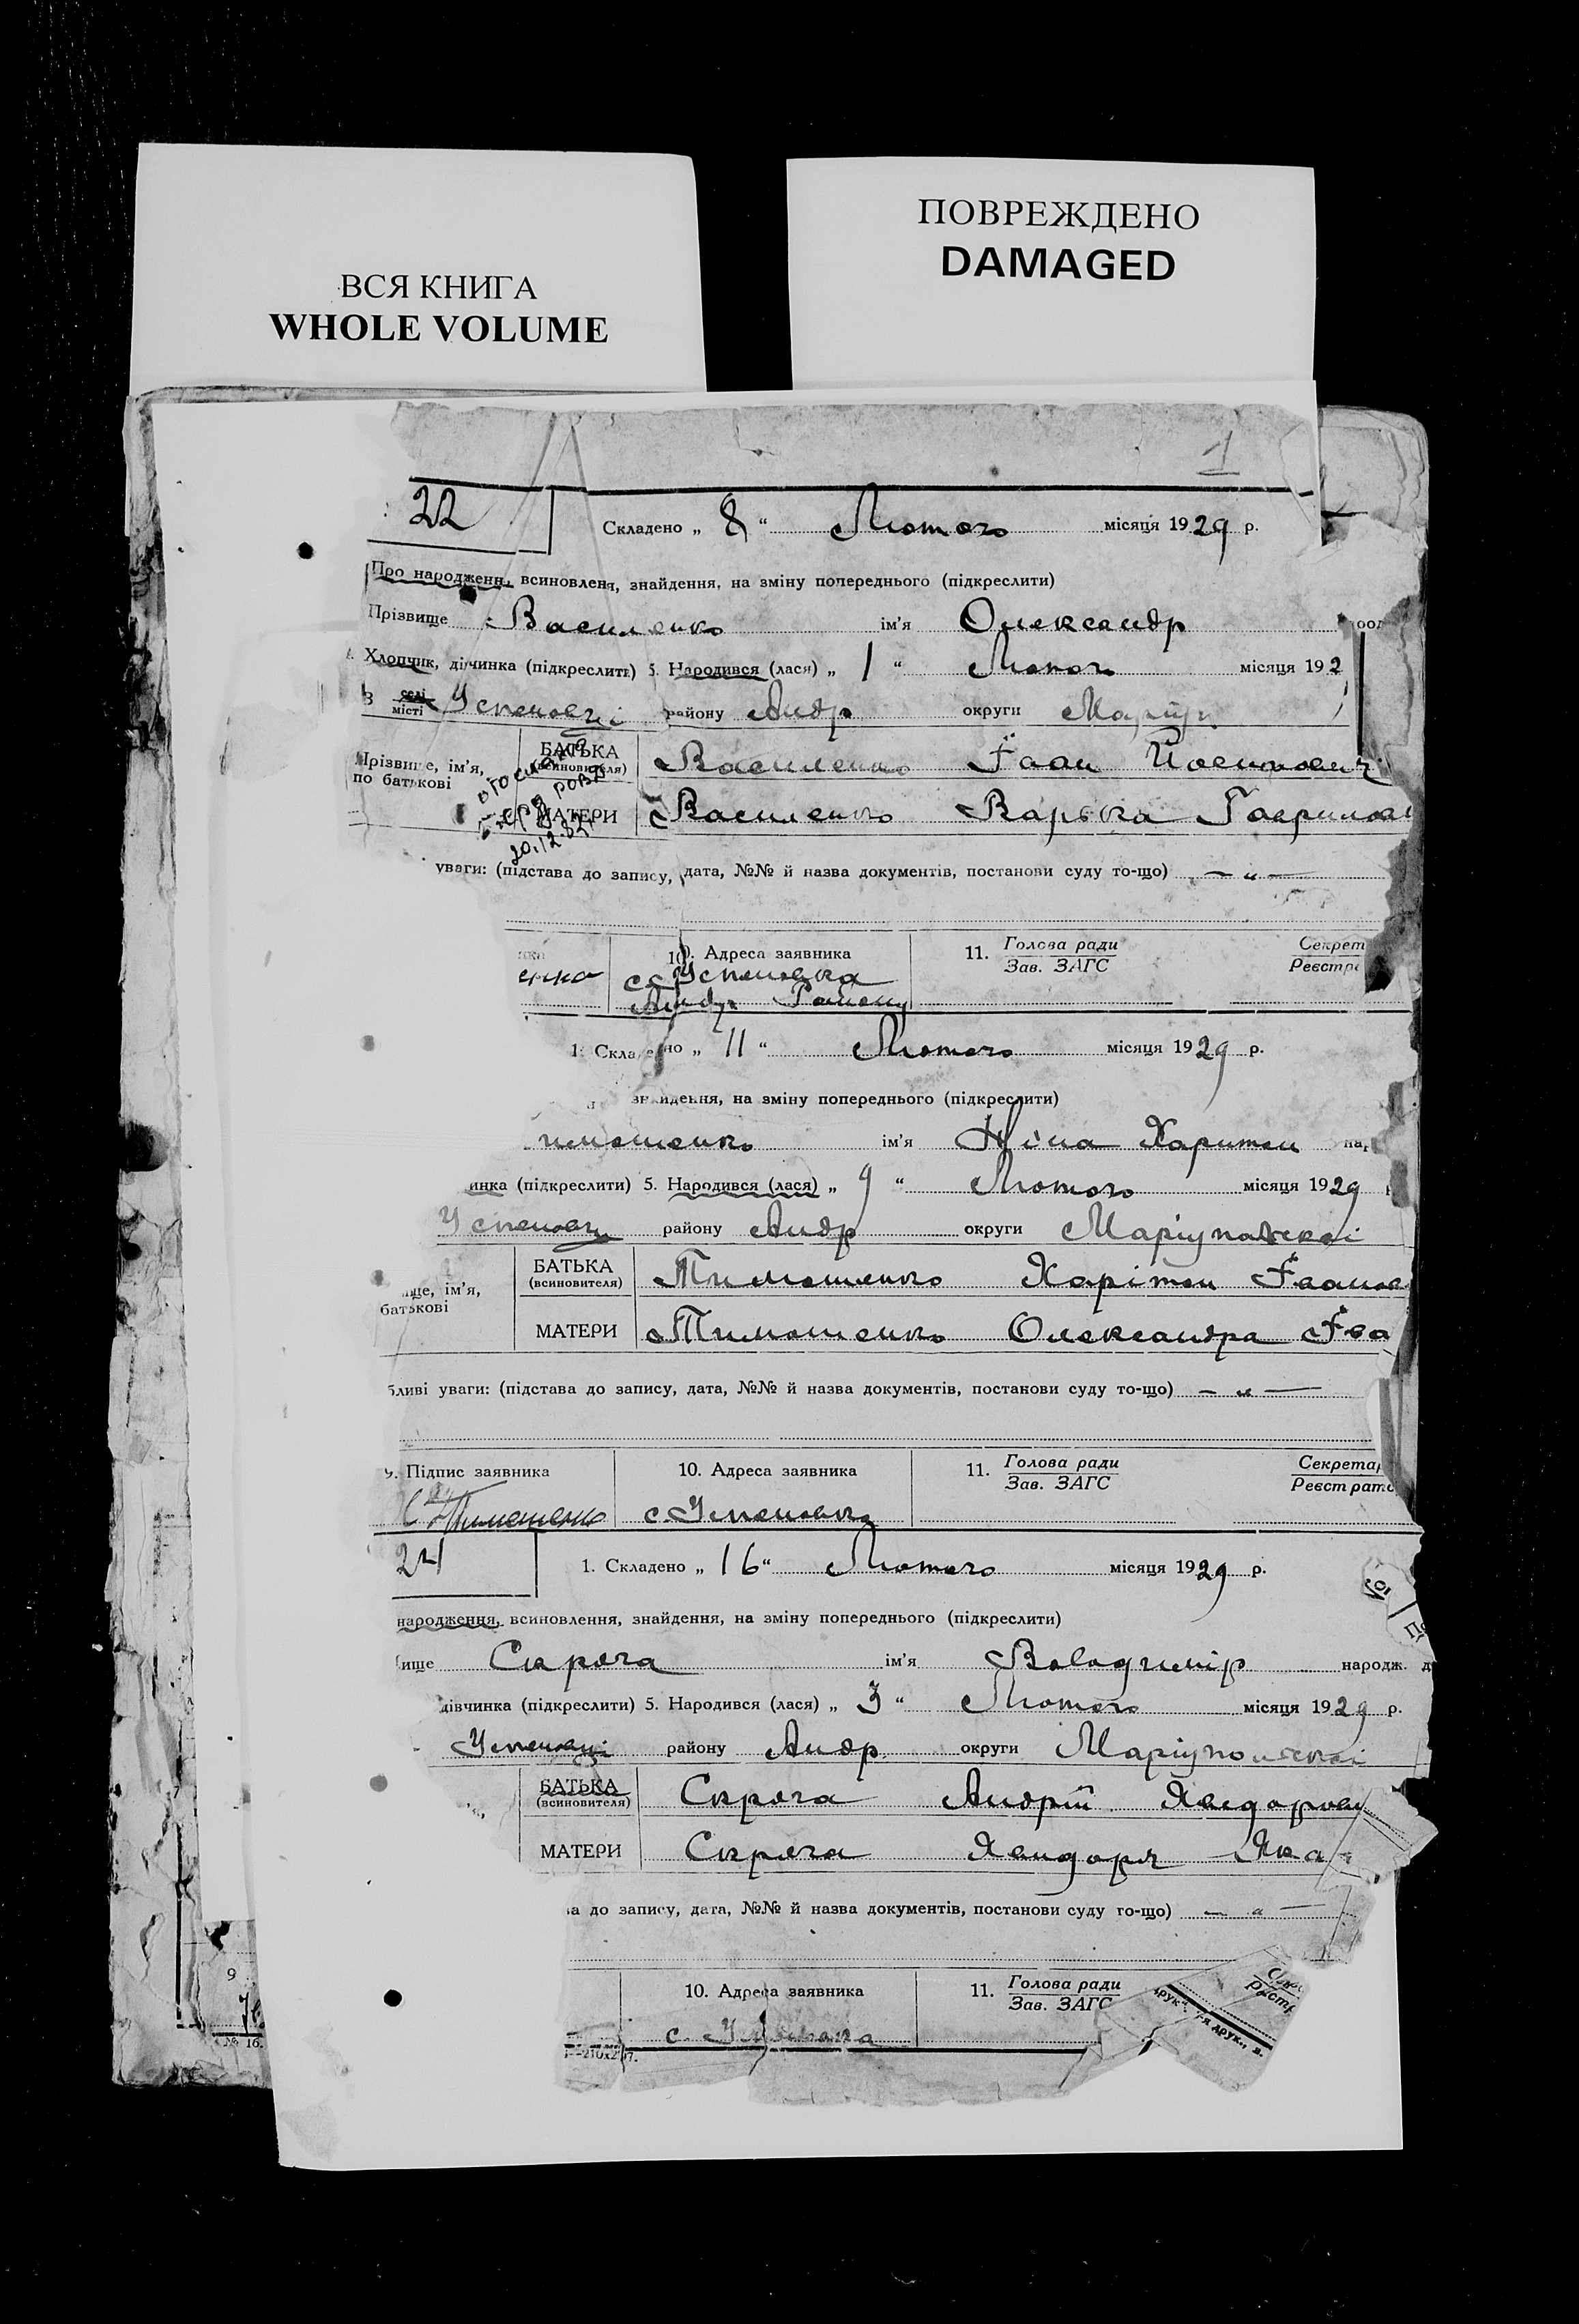 ВСЯ КНИГА
WHOLE VOLUME
ПОВРЕЖДЕНО
DAMAGED
1
22
Складено „ 8 “ Лютого місяця 1929 р.
Про народженн, всиновленя, знайдення, на зміну попереднього (підкреслити)
Прізвище Василенко ім'я Олександр
Хлопчик, дівчинка (підкреслити) 5. Народився (лася) „ 1 “ Лютого місяця 192
В селі місті Успеновці району Андр округи Маріуп
Прізвище, ім'я, по батькові
БАТЬКА (всиновителя) Василенко Іван Йосипович
МАТЕРИ Василенко Варька Гаврилов
20.12.82
уваги: (підстава до запису, дата, №№ й назва документів, постанови суду то-що) — „ —
10. Адреса заявника
11. Голова ради
Зав. ЗАГС
Секрет
Реєстра
енко
с. Успеновка
Андр Району
1. Складено „ 11 “ Лютого місяця 1929 р.
знайдення, на зміну попереднього (підкреслити)
имошенко ім'я Ніна Харитон на
инка (підкреслити) 5. Народився (лася) „ 9 “ Лютого місяця 1929
Успеновці району Андр округи Маріупольскоі
ище, ім'я,
батькові
БАТЬКА (всиновителя) Тимошенко Харітон Іванов
МАТЕРИ Тимошенко Олександра Іва
бливі уваги: (підстава до запису, дата, №№ й назва документів, постанови суду то-що) — „ —
9. Підпис заявника
10. Адреса заявника
11. Голова ради
Зав. ЗАГС
Секретар
Реєстрато
Тимошенко
с. Успеновка
24
1. Складено „ 16 “ Лютого місяця 1929 р.
народження, всиновлення, знайдення, на зміну попереднього (підкреслити)
ище Скряга ім'я Володимір народж. д
дівчинка (підкреслити) 5. Народився (лася) „ 3 “ Лютого місяця 1929 р.
Успеновці району Андр. округи Маріупольскоі
БАТЬКА (всиновителя) Скряга Андрій
МАТЕРИ Скряга
а до запису, дата, №№ й назва документів, постанови суду то-що) — „ —
10. Адреса заявника
11. Голова ради
Зав. ЗАГС
9
№ 16.